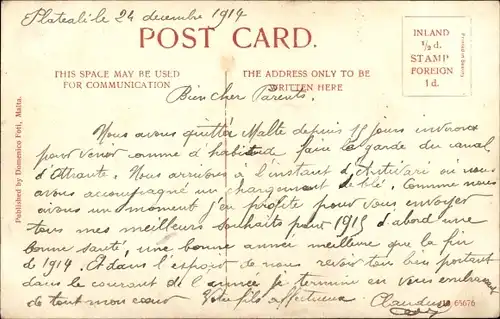 Plateali le 24 decembre 1914
POST CARD.
THIS SPACE MAY BE USED
FOR COMMUNICATION
THE ADDRESS ONLY TO BE
WRITTEN HERE
INLAND
½ d.
STAMP
FOREIGN
1 d.
Published by Domenico Foti, Malta.
Bien cher Parents.
Nous avons quitté Malte depuis 15 jours environ
pour venir comme d'habitude faire la garde du canal
d'Otrante. Nous arrivons à l'instant d'Antivari où nous
avons accompagné un chargement de blé. Comme nous
avons un moment j'en profite pour vous envoyer
tous mes meilleurs souhaits pour 1915 d'abord une
bonne santé, une bonne année meilleure que la fin
de 1914. Et dans l'espoir de nous revoir tous bien portant
dans le courant de l'année je termine en vous embrassant
de tout mon cœur Votre fils affectueux
65676